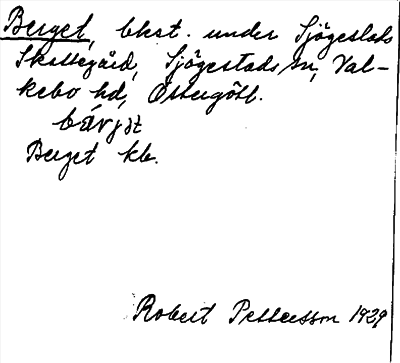 Berget, bkst. under Sjögestads
Skattegård, Sjögestads sn, Val-
kebo hd, Östergötl.
bärjət
Berget kb.
Robert Pettersson 1929